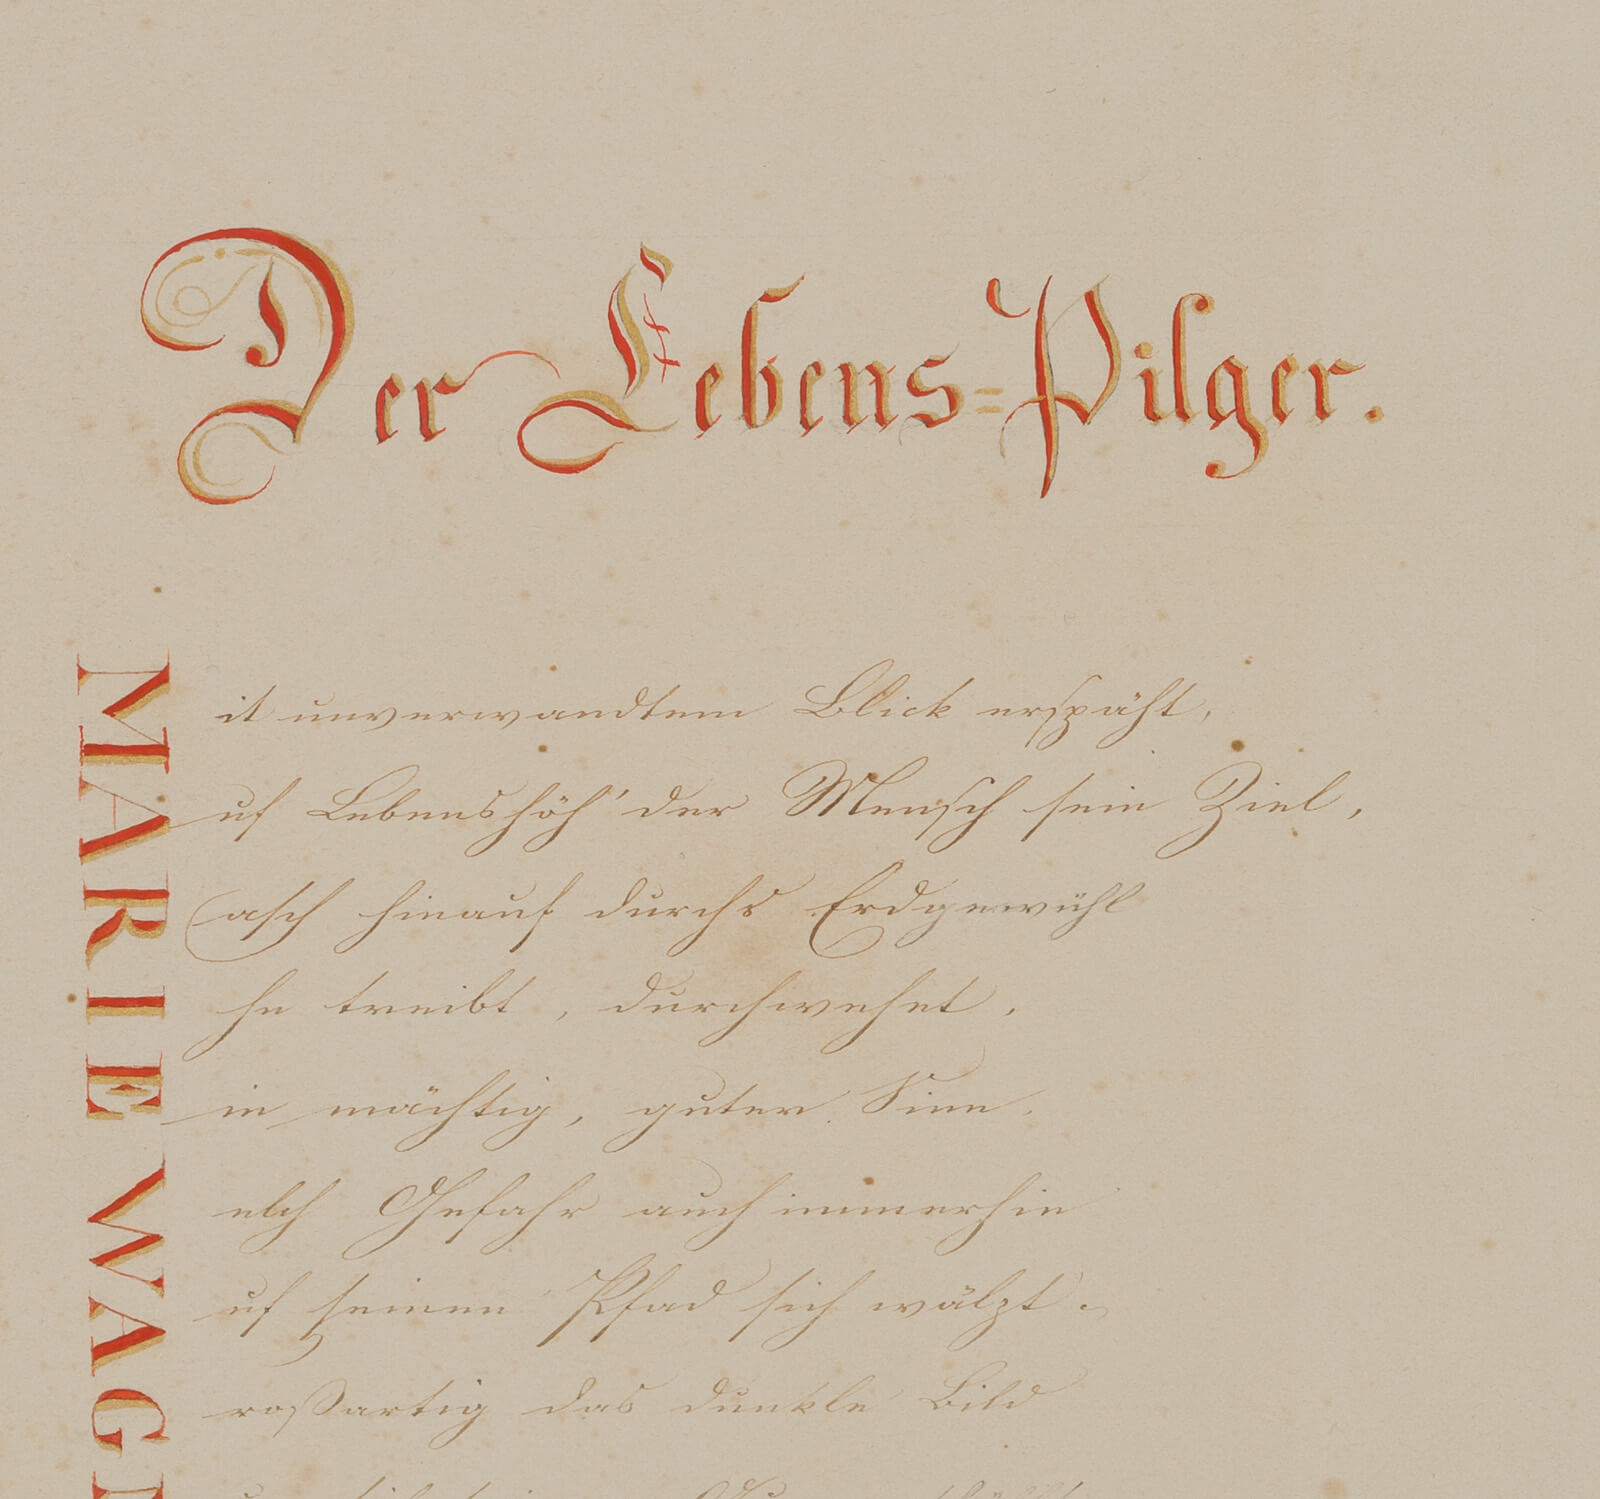 Der Lebens=Pilger.
Mit unverwandtem Blick erspäht,
Auf Lebenshöh' der Mensch sein Ziel,
Rasch hinauf durchs Erdgewühl
Ihn treibt, durchwehet,
Ein mächtig, guter Sinn.
Welch Gefahr auch immerhin
Auf seinen Pfad sich wälzt.
Großartig das dunkle Bild